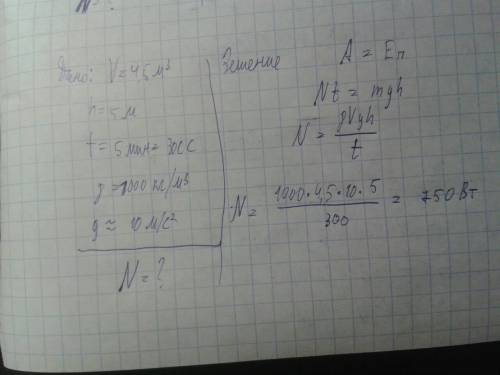 N = ?
Дано: V = 4,5 м³
h = 5 м
t = 5 мин = 300 с
ρ = 1000 кг/м³
g ≈ 10 м/с²
N = ?
Решение
A = Eп
Nt = mgh
N = ρVgh / t
N = 1000 · 4,5 · 10 · 5 / 300 = 750 Вт